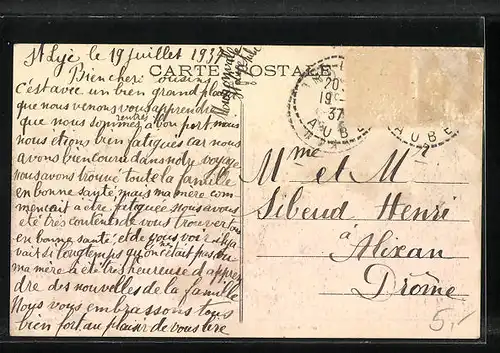 St Lyé le 19 juillet 1937
CARTE POSTALE
Bien chers cousins
c'est avec un bien grand plaisir
que nous venons vous apprendre
que nous sommes rentrés à bon port, mais
nous étions bien fatigués car nous
avons bien couru dans notre voyage
nous avons trouvé toute la famille
en bonne santé, mais ma mère com
mençait a être fatiguée nous avons
été très contents de vous trouver tous
en bonne santé, et de vous voir il y a
vait si longtemps qu'on s'était pas vu
ma mère a été très heureuse d'appren
dre des nouvelles de la famille
Nous vous embrassons tous
bien fort au plaisir de vous lire
20
19
37
AUBE
AUBE
Mme et Mr
Sibeud Henri
à Alixan
Drôme
5,-